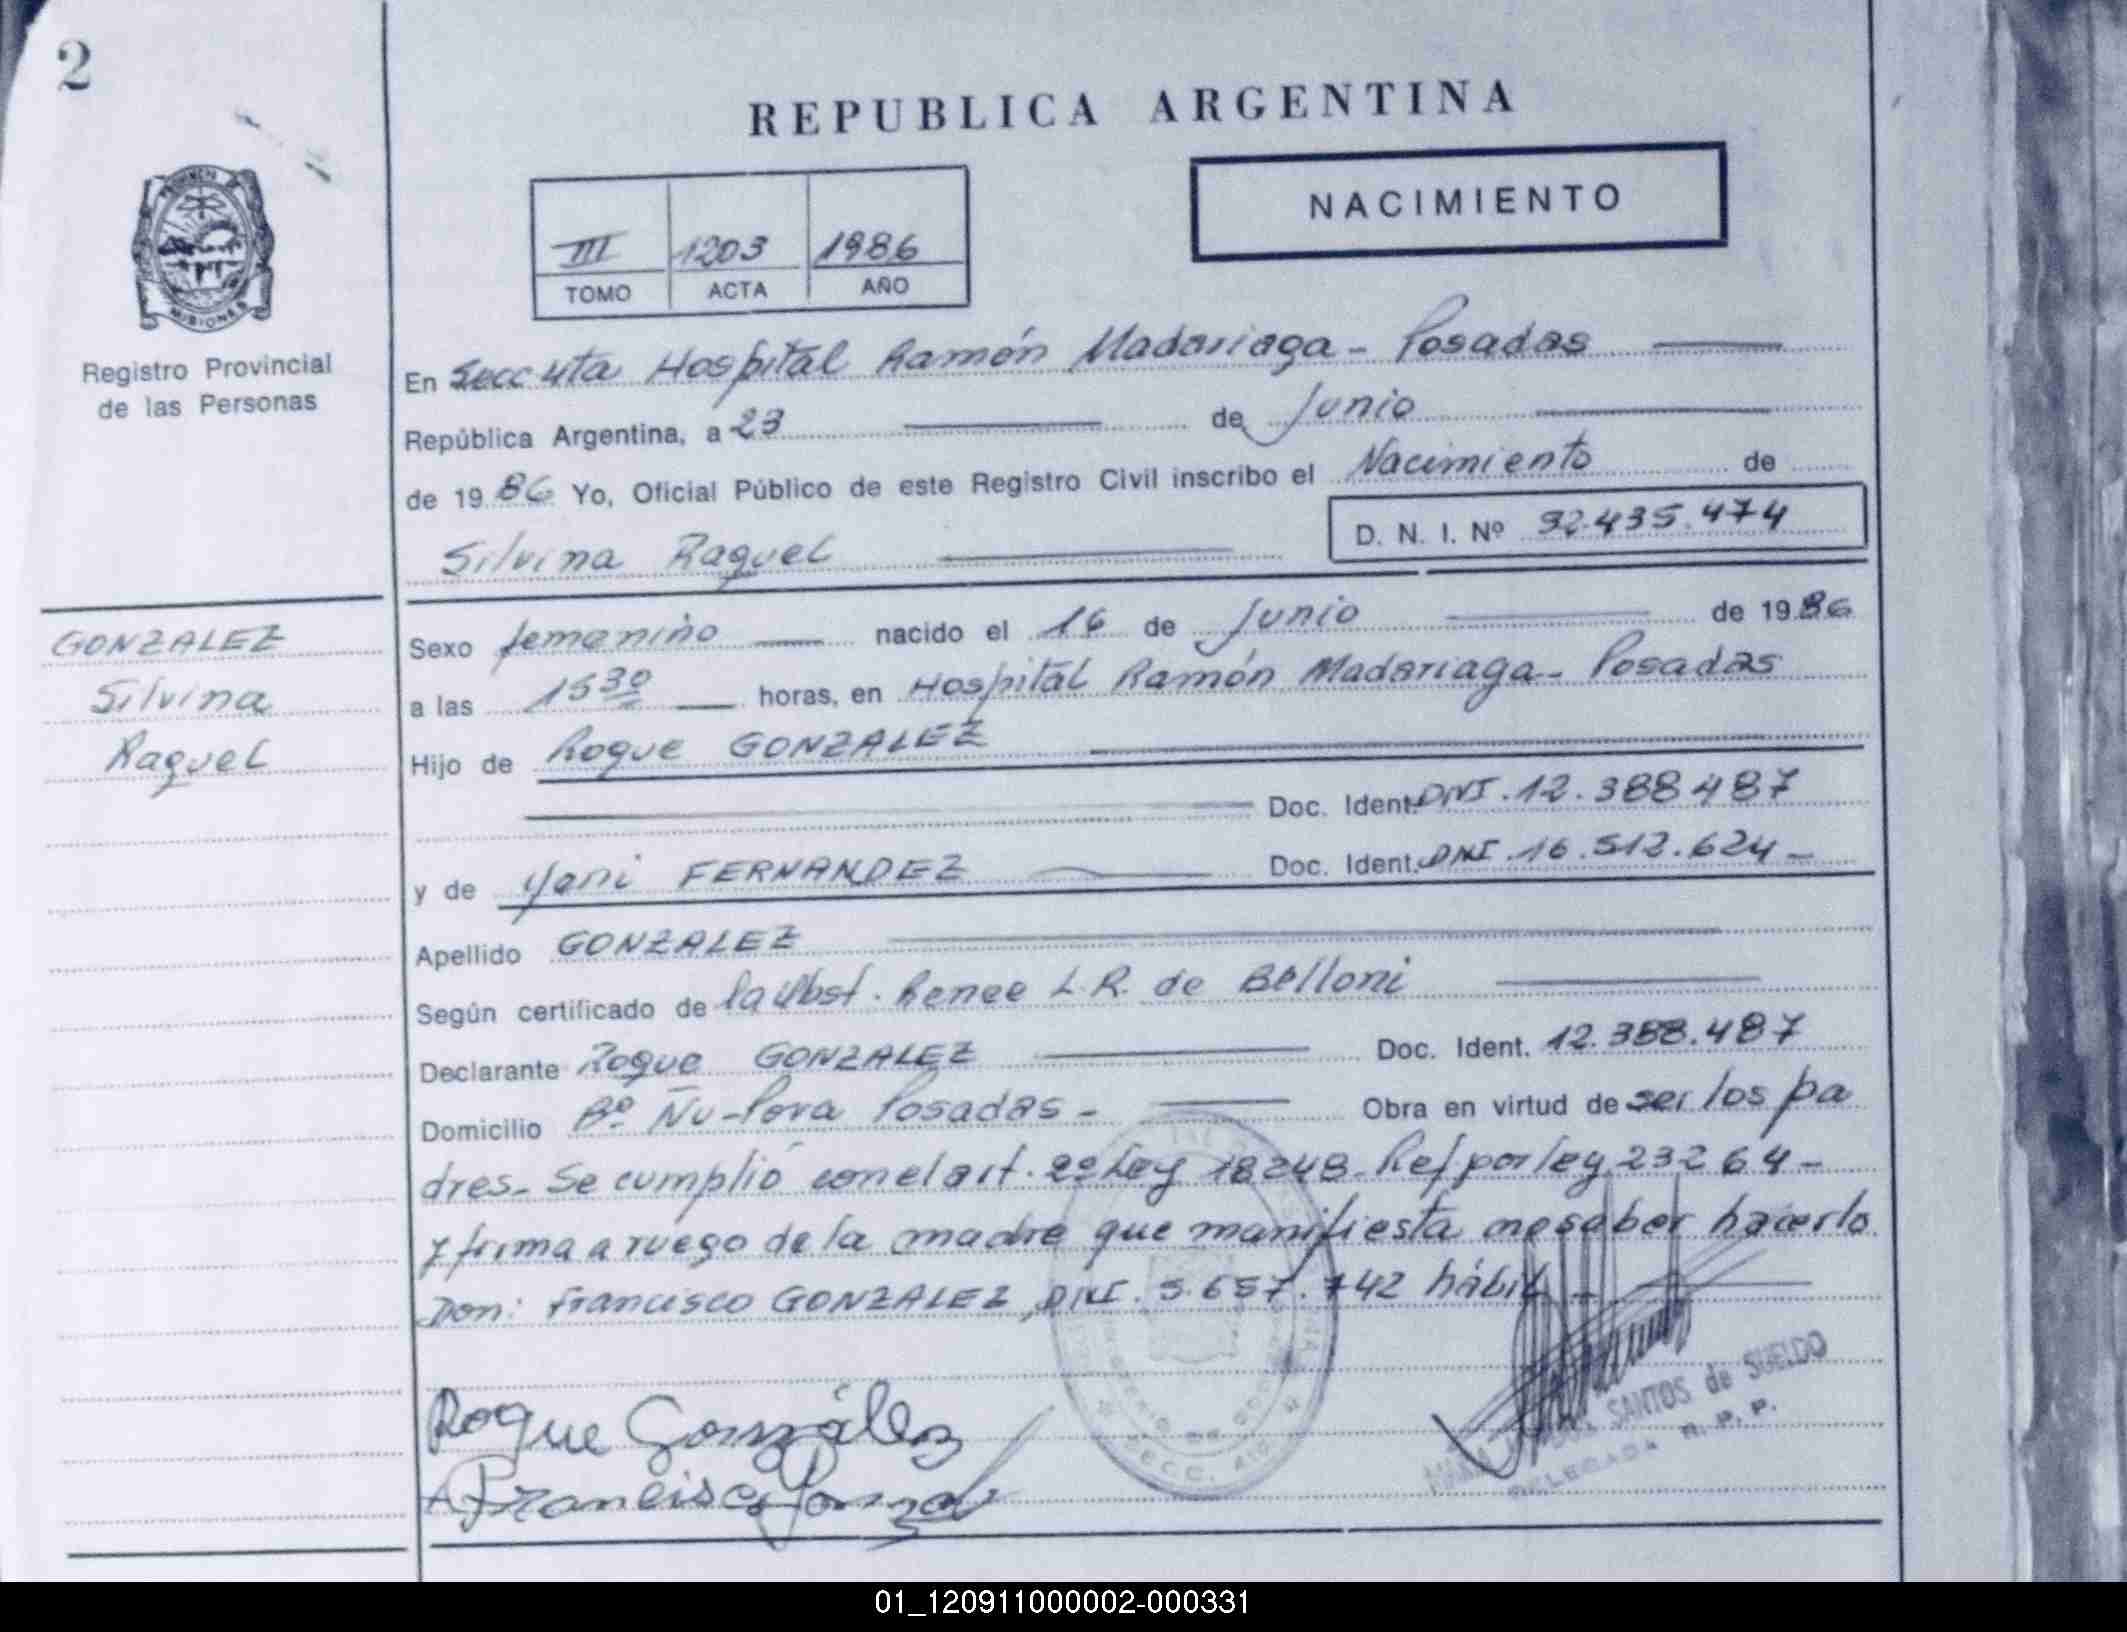 2
REPUBLICA ARGENTINA
NACIMIENTO
III 1203 1986
TOMO ACTA AÑO
PROVINCIA
MISIONES
Registro Provincial
de las Personas
En Secc 4ta Hospital Ramón Madariaga - Posadas
República Argentina, a 23 de Junio
de 1986 Yo, Oficial Público de este Registro Civil inscribo el Nacimiento de
Silvina Raquel D. N. I. Nº 32.435.474
GONZALEZ
Silvina
Raquel
Sexo femenino nacido el 16 de Junio de 1986
a las 15 30 horas, en Hospital Ramón Madariaga - Posadas
Hijo de Roque GONZALEZ
Doc. Ident. DNI. 12.388.487
y de Yani FERNANDEZ Doc. Ident. DNI. 16.512.624 -
Apellido GONZALEZ
Según certificado de la Obst. Renee L.R. de Belloni
Declarante Roque GONZALEZ Doc. Ident. 12.388.487
Domicilio Bº Ñu-Pora Posadas - Obra en virtud de ser los pa
dres - Se cumplió con el art. 2º Ley 18248. Ref por ley 23264 -
y firma a ruego de la madre que manifiesta no saber hacerlo
Don: Francisco GONZALEZ, DNI. 5.657.742 hábil -
Roque González
Francisco
SANTOS de SUELDO
DELEGADA R. P. P.
SECC. 4ta
01_120911000002-000331